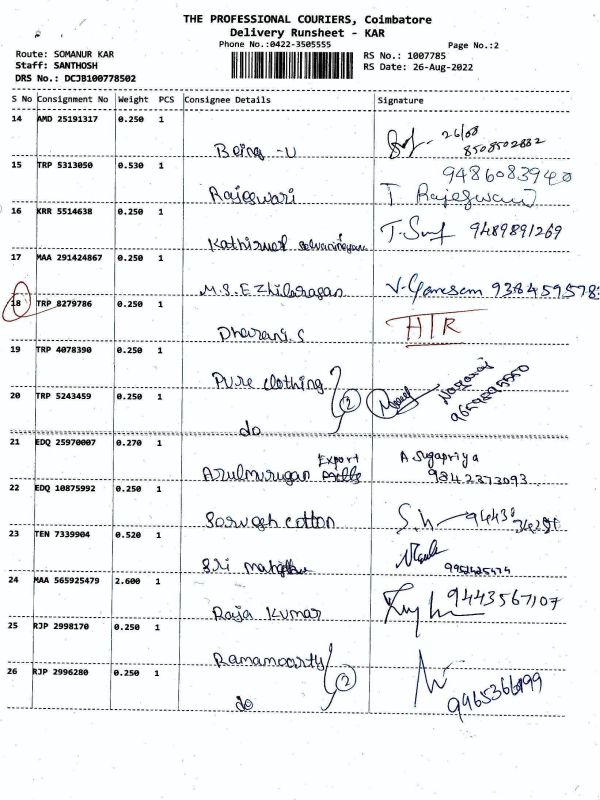 THE PROFESSIONAL COURIERS, Coimbatore
Delivery Runsheet - KAR
Phone No.:0422-3505555
Page No.:2
Route: SOMANUR KAR
RS No.: 1007785
Staff: SANTHOSH
RS Date: 26-Aug-2022
DRS No.: DCJB100778502
S No Consignment No Weight PCS Consignee Details Signature
14 AMD 25191317 0.250 1
Being -U 26/08 8508502882
15 TRP 5313050 0.530 1
Rajeswari 9486083940 T Rajeswari
16 KRR 5514638 0.250 1
Kathirvel T. 9489891269
17 MAA 291424867 0.250 1
M.S. Ezhilarasan V. Ganesan 9384595783
18 TRP 8279786 0.250 1
Dharani.S HTR
19 TRP 4078390 0.250 1
Pure clothing 2
20 TRP 5243459 0.250 1
do
21 EDQ 25970007 0.270 1
Arulmurugan Export Mills A Sugapriya 9842373093
22 EDQ 10875992 0.250 1
cotton S.
23 TEN 7339904 0.520 1
Sri
24 MAA 565925479 2.600 1
Raja Kumar 9443567107
25 RJP 2998170 0.250 1
Ramamoorty 2
26 RJP 2996280 0.250 1
do 9965366199